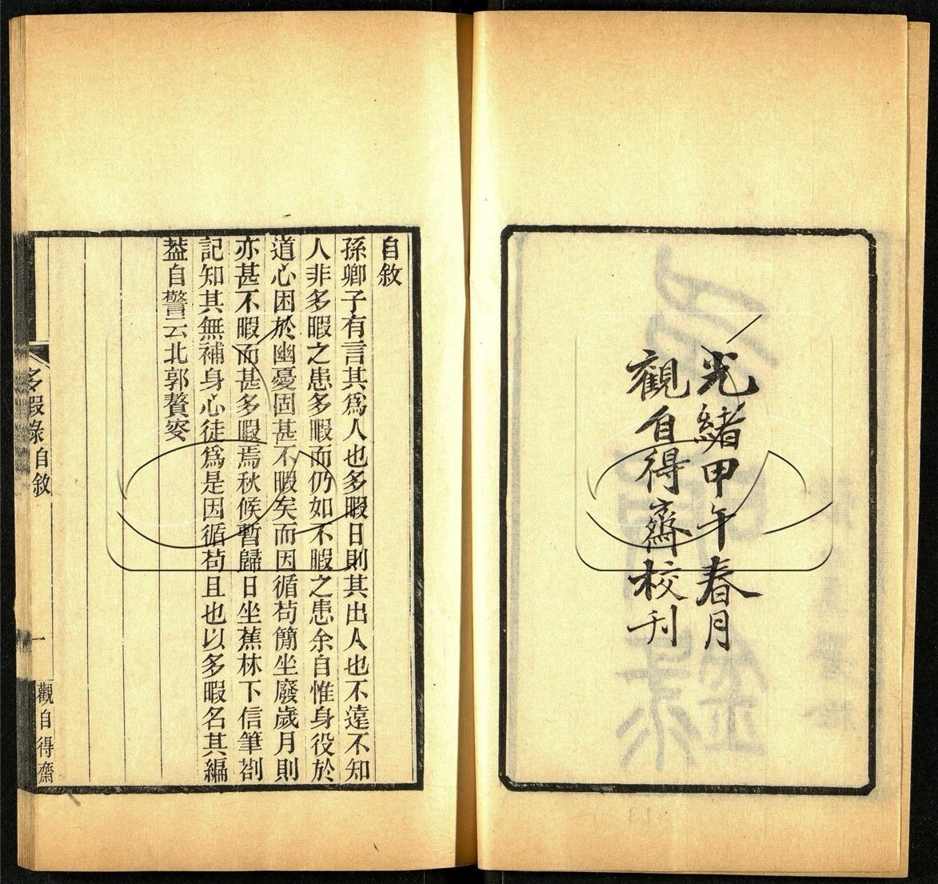 光緒甲午春月
觀自得齋校刊
自敘
孫卿子有言其爲人也多暇日則其出人也不遠不知
人非多暇之患多暇而仍如不暇之患余自惟身役於
道心困於幽憂固甚不暇矣而因循苟簡坐廢歲月則
亦甚不暇而甚多暇焉秋候暫歸日坐蕉林下信筆劄
記知其無補身心徒爲是因循苟且也以多暇名其編
葢自警云北郭贅叜
多暇錄自敘
一
觀自得齋